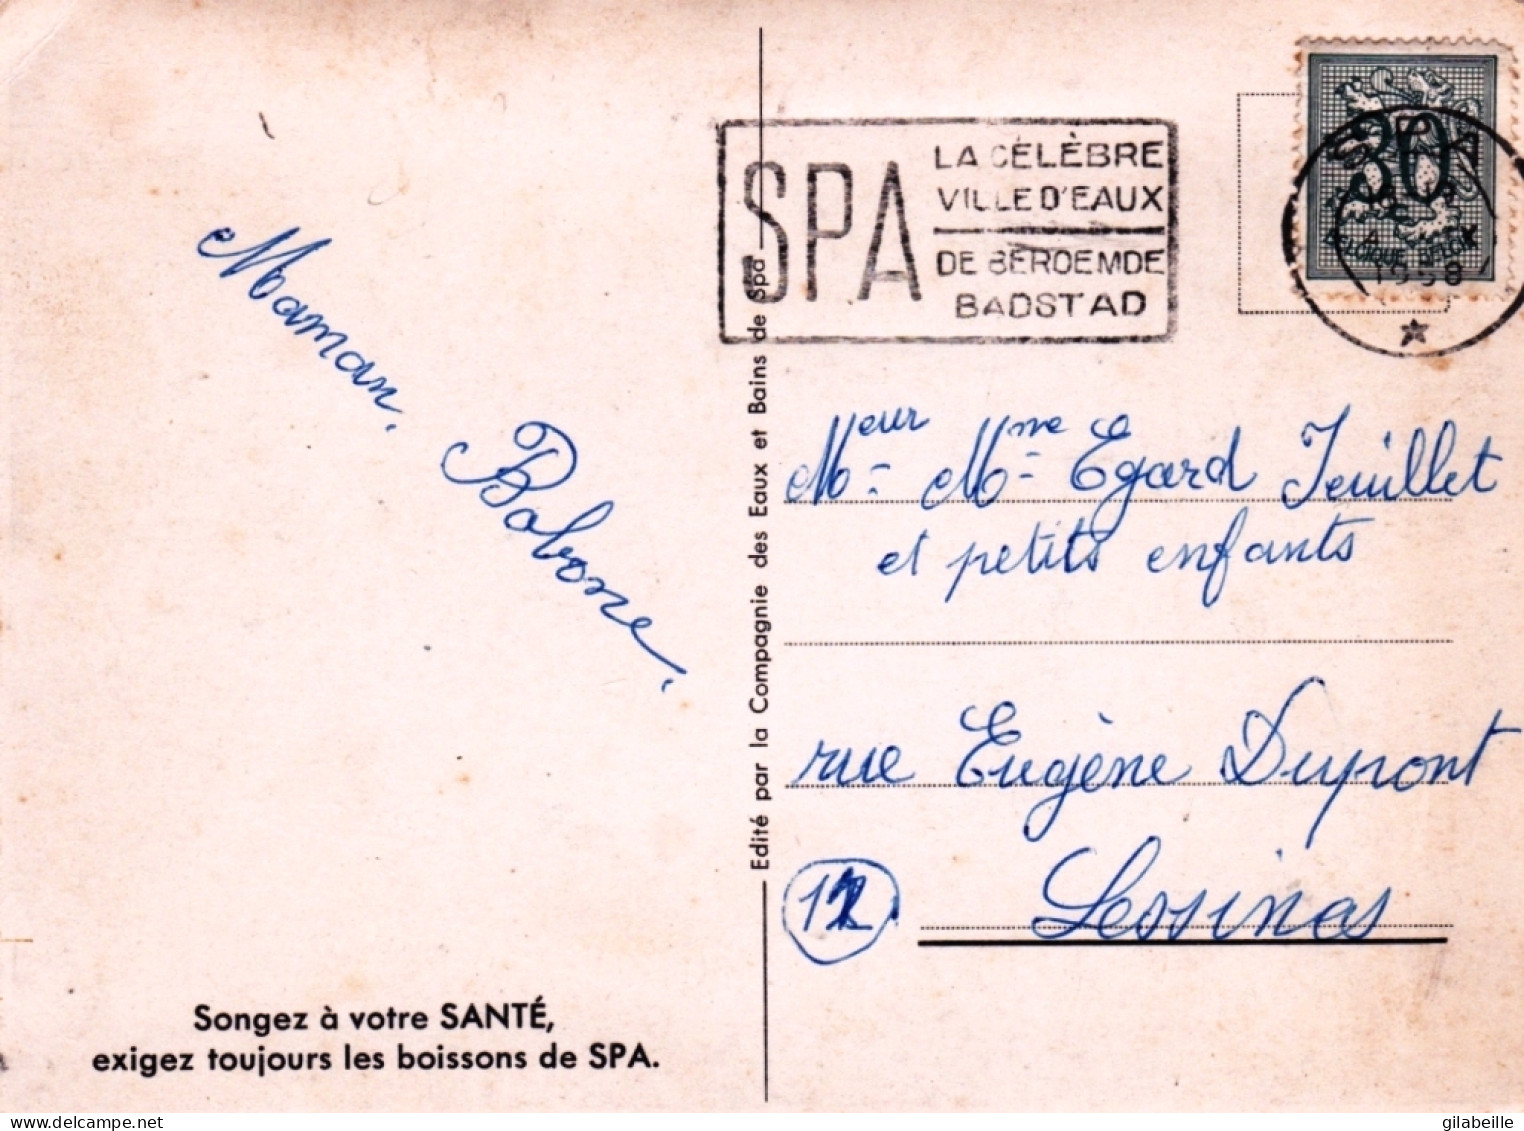 SPA
LA CÉLÈBRE
VILLE D'EAUX
DE BEROEMDE
BADSTAD
30
BELGIQUE BELGIE
1958
Maman.
Bobonne.
Meur Mme Egard Feuillet
et petits enfants
rue Eugène Dupont
12
Lessines
Edité par la Compagnie des Eaux et Bains de Spa
Songez à votre SANTÉ,
exigez toujours les boissons de SPA.
gilabeille